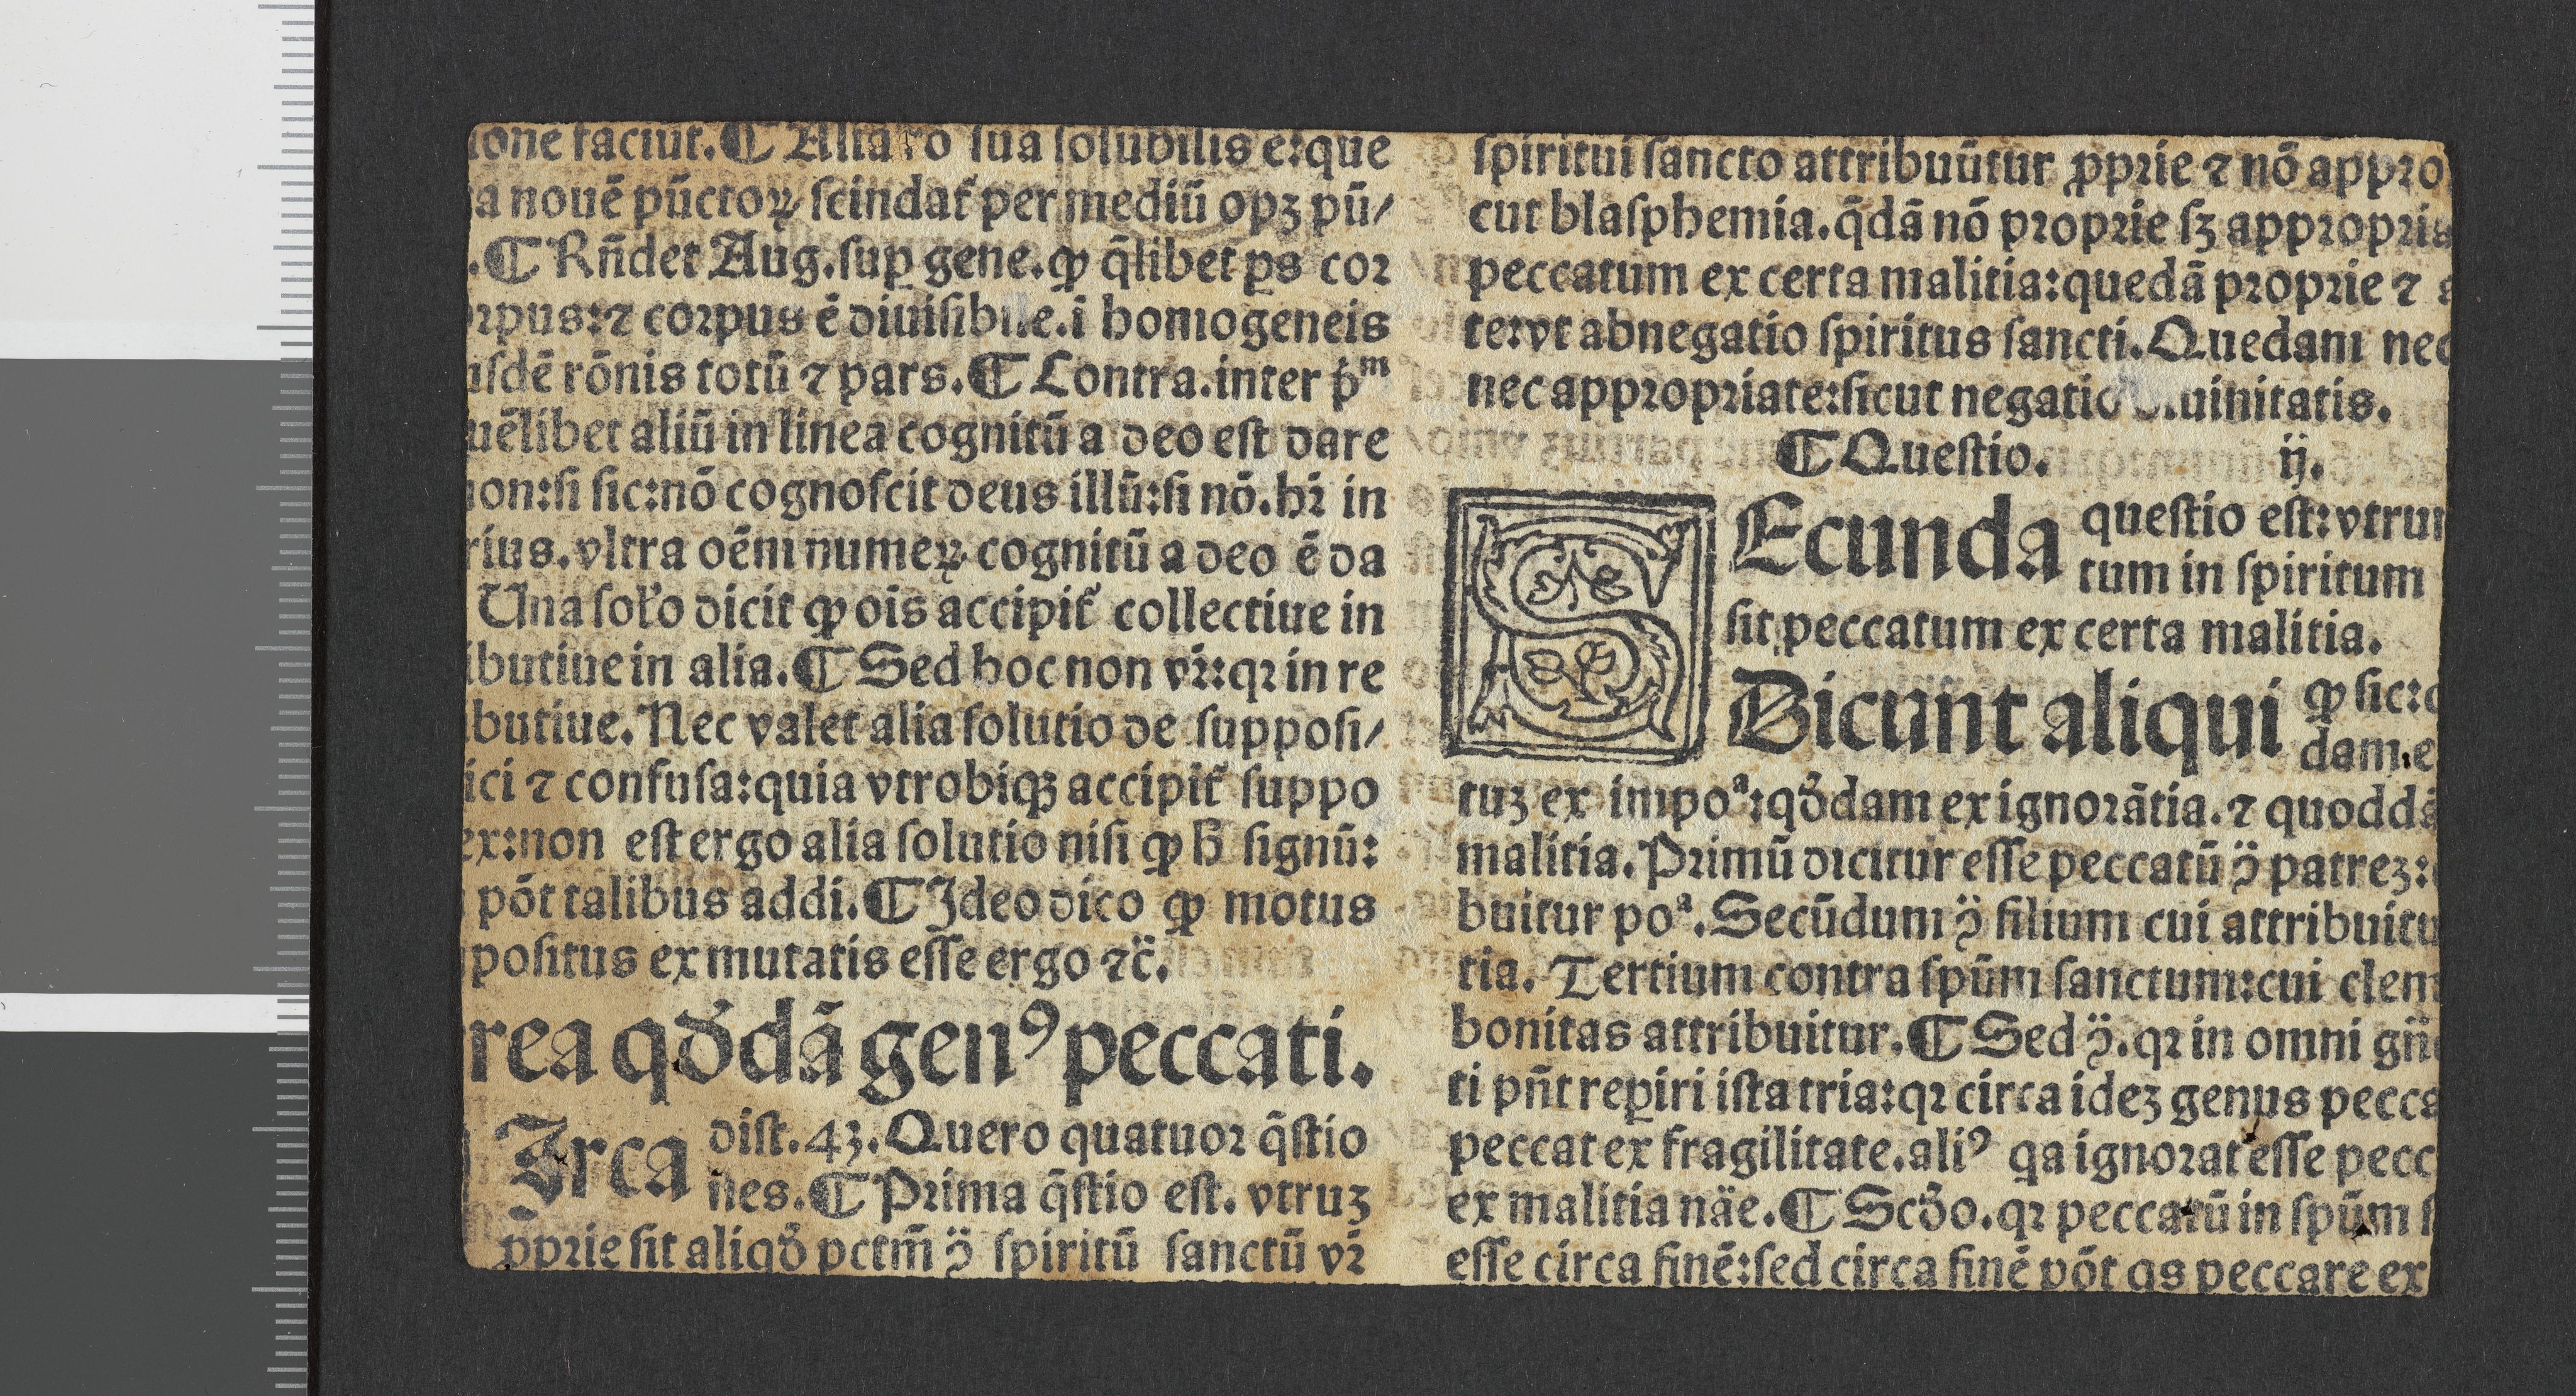 ione faciūt. ¶ Alia rō sua solubilis e: que
a nouē pūctoꝝ scindat᷑ per mediū opꝫ pū/
. ¶ Rn̄det Aug. sup gene. ꝙ q̄libet ps cor
orpus: ⁊ corpus ē diuisibile. ī homogeneis
usdē rōnis totū ⁊ pars. ¶ Contra. inter pͥmᵐ
uēlibet aliū in linea cognitū a deo est dare
non: si sic: nō cognoscit deus illū: si nō. hr̄ in
rius. vltra oēm numeꝝ cognitū a deo ē da
Una solo dicit ꝙ ois accipit᷑ collectiue in
ibutiue in alia. ¶ Sed hoc non vr̄: qꝛ in re
butiue. Nec valet alia solutio de supposi/
ici ⁊ confusa: quia vtrobiqꝫ accipit᷑ suppo
ex: non est ergo alia solutio nisi ꝙ h̄ signū:
pōt talibus addi. ¶ Ideo dico ꝙ motus
positus ex mutatis esse ergo ⁊c̄.
rea qd̄dā genꝰ peccati.
Irca dist. 43. Quero quatuor q̄stio
nes. ¶ Prima q̄stio est. vtruꝫ
ꝓprie sit aliqd̄ pctm̄ ↄ̈ spiritū sanctū vr̄
spiritui sancto attribuūtur ꝓprie ⁊ nō appro
cut blasphemia. q̄dā nō proprie sꝫ appropria
peccatum ex certa malitia: quedā proprie ⁊ a
te: vt abnegatio spiritus sancti. Quedam nec
nec appropriate: sicut negatio diuinitatis.
¶ Questio. ij.
SEcunda questio est: vtrum
tum in spiritum
sit peccatum ex certa malitia.
Dicunt aliqui ꝙ sic: q
dam e
tuꝫ ex impoᵃ: qd̄dam ex ignorātia. ⁊ quoddā
malitia. Primū dicitur esse peccatū ↄ̈ patreꝫ:
buitur poᵃ. Secūdum ↄ̈ filium cui attribuitu
tia. Tertium contra spūm sanctum: cui clem
bonitas attribuitur. ¶ Sed ↄ̈. qꝛ in omni gn̄e
ti pn̄t reꝑiri ista tria: qꝛ circa ideꝫ genus pecca
peccat ex fragilitate. aliꝰ qa ignorat esse pecc
ex malitia näe. ¶ Scd̄o. qꝛ peccatū in spūm s
esse circa finē: sed circa finē pōt qs peccare ex